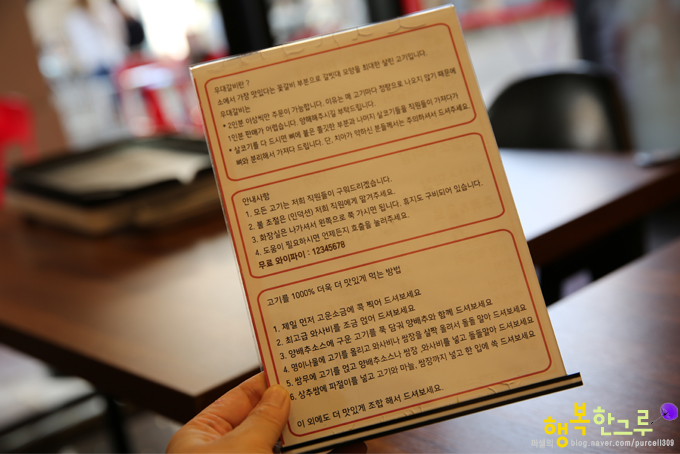 우대갈비란 ?
소에서 가장 맛있다는 꽃갈비 부분으로 갈빗대 모양을 최대한 살린 고기입니다.
우대갈비는
* 2인분 이상씩만 주문이 가능합니다. 이유는 매 고기마다 정량으로 나오지 않기 때문에
1인분 판매가 어렵습니다. 양해해주시길 부탁드립니다.
* 살코기를 다 드시면 뼈에 붙은 쫄깃한 부분과 나머지 살코기들을 직원들이 가져다가
뼈와 분리해서 가져다 드립니다. 단, 치아가 약하신 분들께서는 주의하셔서 드셔주세요
안내사항
1. 모든 고기는 저희 직원들이 구워드리겠습니다.
2. 불 조절은 (인덕션) 저희 직원에게 맡겨주세요.
3. 화장실은 나가셔서 왼쪽으로 쭉 가시면 됩니다. 휴지도 구비되어 있습니다.
4. 도움이 필요하시면 언제든지 호출을 눌러주세요.
무료 와이파이 : 12345678
고기를 1000% 더욱 더 맛있게 먹는 방법
1. 제일 먼저 고운소금에 콕 찍어 드셔보세요
2. 최고급 와사비를 조금 얹어 드셔보세요
3. 양배추소스에 구운 고기를 푹 담궈 양배추와 함께 드셔보세요
4. 명이나물에 고기를 올리고 와사비나 쌈장을 살짝 올려서 돌돌 말아 드셔보세요
5. 쌈무에 고기를 얹고 양배추소스나 쌈장 ,와사비를 넣고 돌돌말아 드셔보세요
6. 상추쌈에 파절이를 넣고 고기와 마늘, 쌈장까지 넣고 한 입에 쏙 드셔보세요
이 외에도 더 맛있게 조합 해서 드셔보세요.
행복한그루
blog.naver.com/purcell309